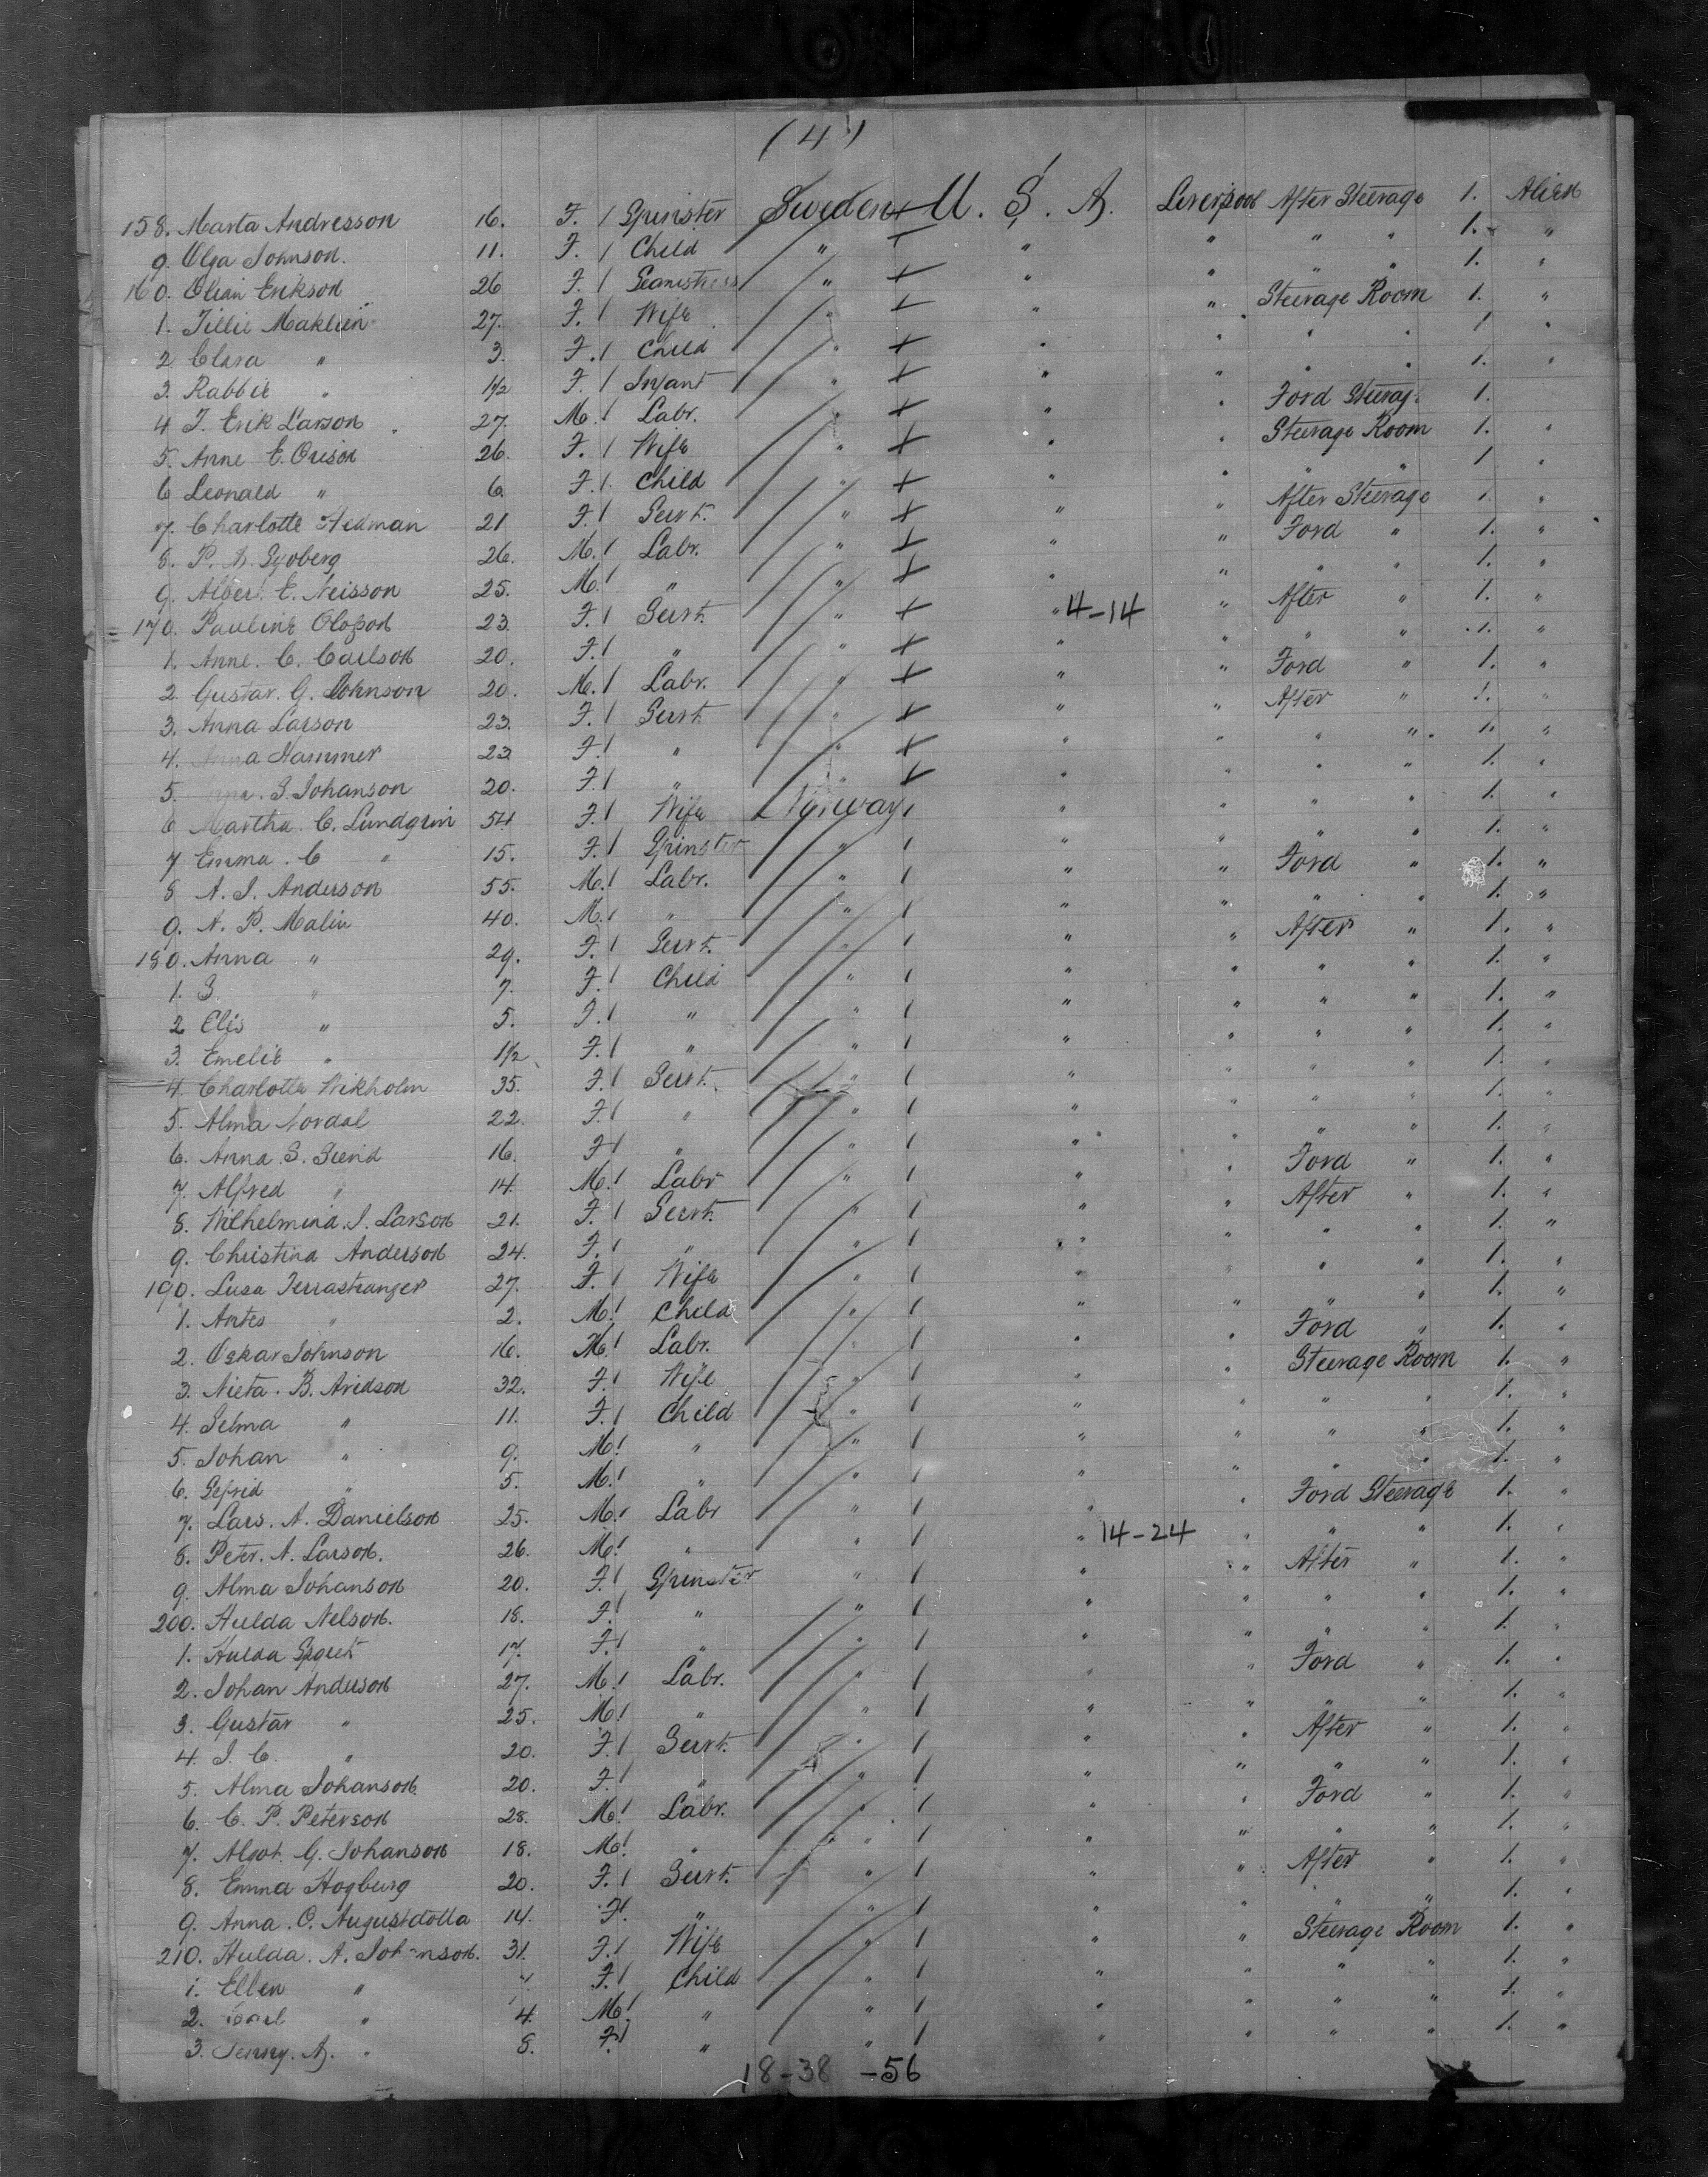 (4)
158. Marta Andresson 16. F. / Spinster Sweden + U. S. A. Liverpool After Steerage 1. Alien
9. Olga Johnson. 11. F. / Child " + " " " " 1. "
160. Olian Erikson 26 F. / Seamstress " + " " " " 1. "
1. Tillie Maklein 27. F. / Wife " + " " Steerage Room 1. "
2 Clara " 3. F. / Child " + " " " " 1 "
3. Rabbie " 1/2 F. / Infant " + " " " " 1. "
4 J. Erik Larson 27. M. / Labr. " + " " Ford Steerage 1.
5. Anne E. Orison 26. F. / Wife " + " " Steerage Room 1. "
6 Leonald " 6. F. / Child " + " " " " 1 "
7. Charlotte Hedman 21 F. / Servt. " + " " After Steerage 1. "
8. P. A. Syoberg 26. M. / Labr. " + " " Ford " 1. "
9. Albert E. Neisson 25. M. / " " + " " " " 1. "
170. Pauline Olopon 23. F. / Servt. " + " 4-14 " After " 1. "
1. Anne. C. Carlson 20. F. / " " + " " " " 1. "
2 Gustav. G. Johnson 20. M. / Labr. " + " " Ford " 1. "
3. Anna Larson 23. F. / Servt. " + " " After " 1. "
4. Anna Hammer 23 F. / " " + " " " " 1. "
5. S. Johanson 20. F. / " " + " " " " 1. "
6 Martha. C. Lundgrin 54 F. / Wife Norway / " " " " 1. "
7 Emma. C " 15. F. / Spinster " / " " " " 1. "
8 A. J. Anderson 55. M. / Labr. " / " " Ford " 1. "
9. N. P. Malin 40. M. / " " / " " " " 1. "
180. Anna " 29. F. / Servt. " / " " After " 1. "
1. S " 7. F. / Child " / " " " " 1. "
2 Elis " 5. F. / " " / " " " " 1. "
3. Emelie " 1/2 F. / " " / " " " " 1. "
4. Charlotta Wikholm 35. F. / Servt. " / " " " " 1. "
5. Alma Nordal 22. F. / " " / " " " " 1. "
6. Anna. S. 16. F. / " " / " " " " 1. "
7. Alfred " 14. M. / Labr " / " " Ford " 1. "
8. Wilhelmina. J. Larson 21. F. / Servt. " / " " After " 1. "
9. Christina Anderson 24. F. / " " / " " " " 1. "
190. Lusa Terrastranger 27. F. / Wife " / " " " " 1. "
1. Antes " 2. M. / Child " / " " " " 1. "
2. Oskar Johnson 16. M. / Labr. " / " " Ford " 1. "
3. Nieta. B. Aridson 32. F. / Wife " / " " Steerage Room 1. "
4. Selma " 11. F. / Child " / " " " " 1. "
5. Johan " 9. M. / " " / " " " " 1. "
6. Sefrid " 5. M. / " " / " " " " 1. "
7. Lars. A. Danielson 25. M. / Labr " / " " Ford Steerage 1. "
8. Peter. A. Larson. 26. M. / " " / " 14-24 " " " 1. "
9. Alma Johanson 20. F. / Spinster " / " " After " 1. "
200. Hulda Nelson. 18. F. / " " / " " " " 1. "
1. Hulda 17. F. / " " / " " " " 1. "
2. Johan Anderson 27. M. / Labr. " / " " Ford " 1. "
3. Gustav " 25. M. / " " / " " " " 1. "
4. J. C. " 20. F. / Servt. " / " " After " 1. "
5. Alma Johanson 20. F. / " " / " " " " 1. "
6. C. P. Peterson 28. M. / Labr. " / " " Ford " 1. "
7. Algot. G. Johanson 18. M. / " " / " " " " 1. "
8. Emma Hogburg 20. F. / Servt. " / " " After " 1. "
9. Anna. C. Augustdotta 14. F. / " " / " " " " 1. "
210. Hulda. A. Johnson. 31. F. / Wife " / " " Steerage Room 1. "
1. Ellen " F. / Child " / " " " " 1. "
2. " 4. M. / " " / " " " " 1. "
3. Jenny. A. " 8. F. / " " / " " " " 1. "
18-38-56